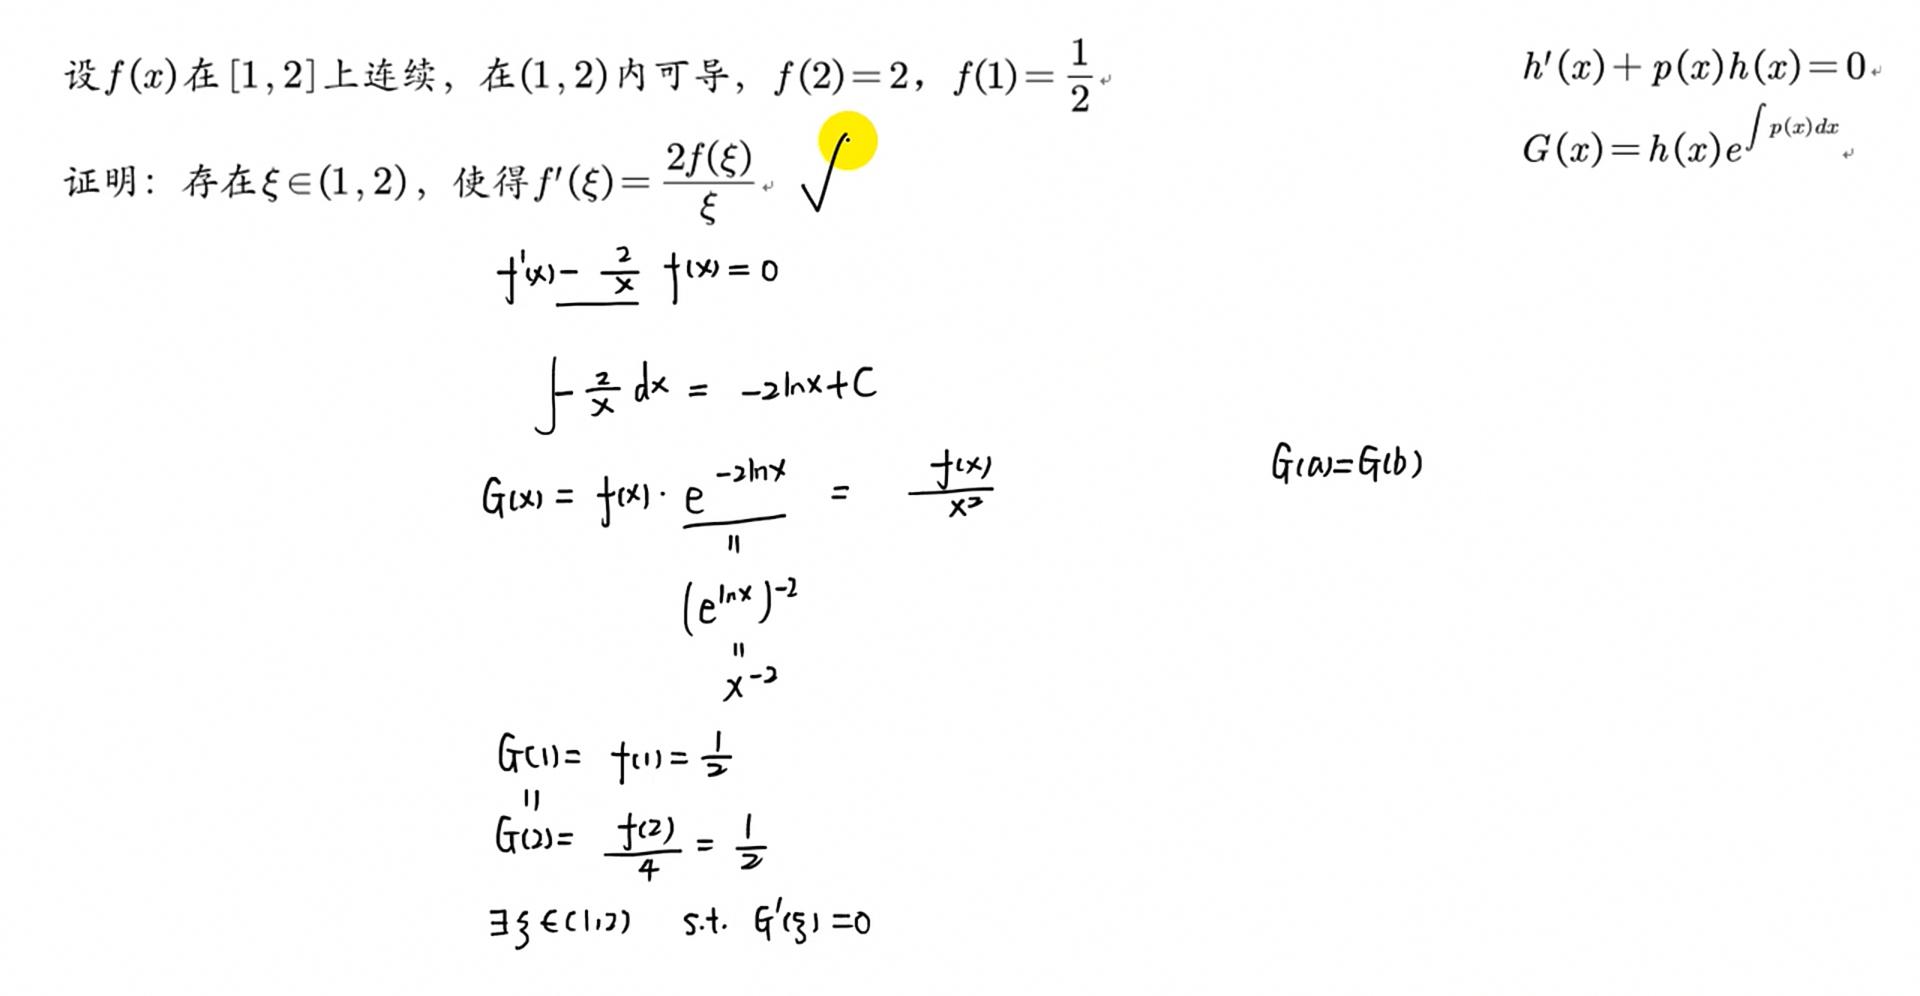 设f(x)在[1,2]上连续，在(1,2)内可导，f(2)=2，f(1)=1/2
证明：存在ξ∈(1,2)，使得f'(ξ)=2f(ξ)/ξ √
h'(x)+p(x)h(x)=0
G(x)=h(x)e^{∫p(x)dx}
f'(x) - 2/x f(x) = 0
∫ -2/x dx = -2lnx+C
G(x) = f(x)·e^{-2lnx} = f(x)/x²
G(a)=G(b)
=
(e^{lnx})^{-2}
=
x^{-2}
G(1)= f(1)=1/2
=
G(2)= f(2)/4 = 1/2
∃ξ∈(1,2) s.t. G'(ξ)=0